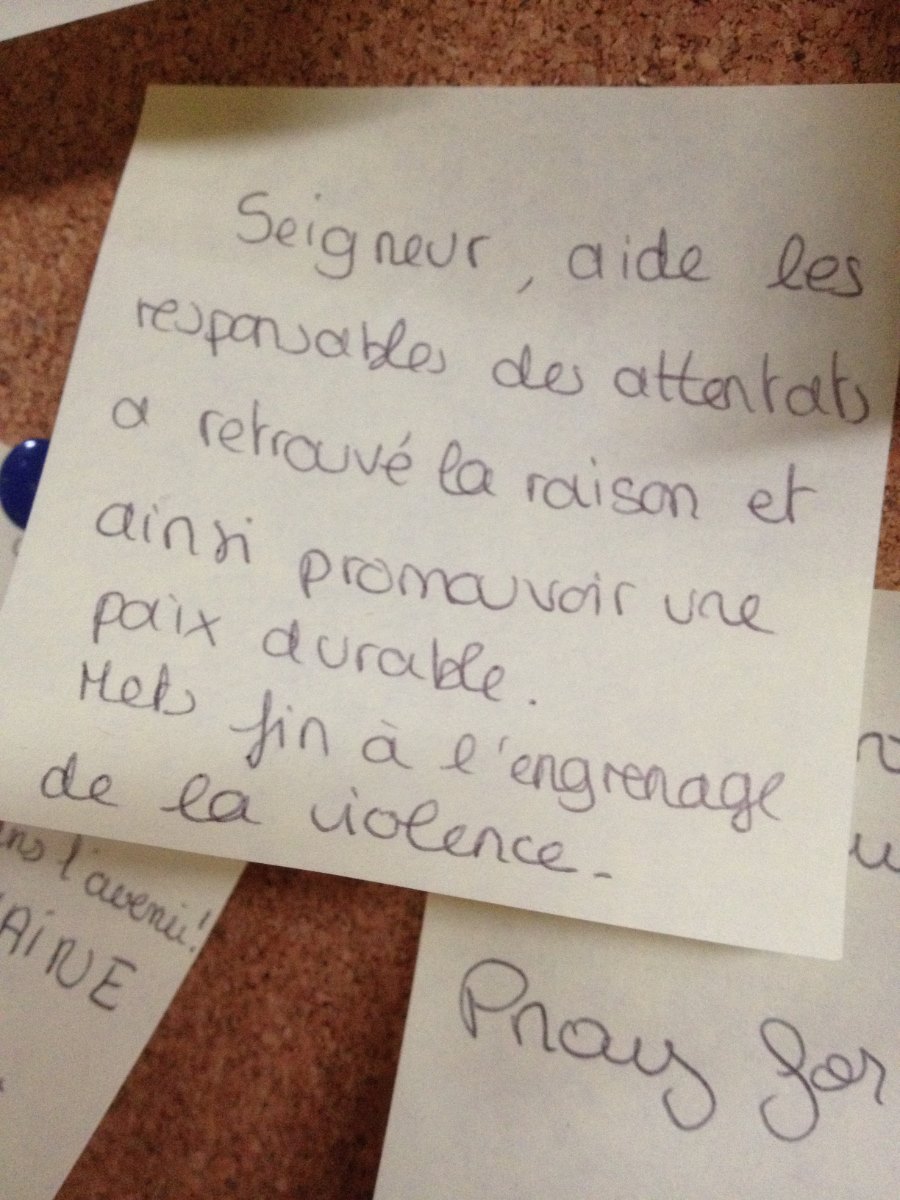 Seigneur, aide les
responsables des attentats
a retrouvé la raison et
ainsi promouvoir une
paix durable.
Mets fin à l'engrenage
de la violence.
l'avenir!
AINE
Pray for